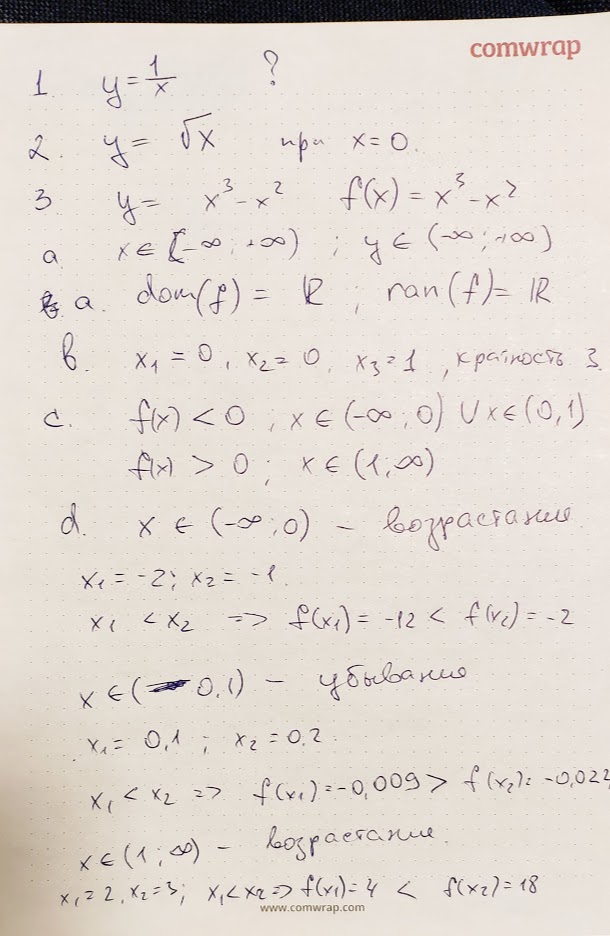 comwrap
1. y = 1/x ?
2. y = √x при x = 0.
3. y = x³ - x² f(x) = x³ - x²
a x ∈ (-∞; +∞) ; y ∈ (-∞; +∞)
a. dom(f) = ℝ ; ran(f) = ℝ
b. x₁ = 0, x₂ = 0, x₃ = 1, кратность 3.
c. f(x) < 0 ; x ∈ (-∞; 0) ∪ x ∈ (0, 1)
f(x) > 0 ; x ∈ (1; ∞)
d. x ∈ (-∞; 0) - возрастание
x₁ = -2; x₂ = -1.
x₁ < x₂ => f(x₁) = -12 < f(x₂) = -2
x ∈ (0, 1) - убывание
x₁ = 0,1 ; x₂ = 0,2.
x₁ < x₂ => f(x₁) = -0,009 > f(x₂) = -0,022
x ∈ (1; ∞) - возрастание.
x₁ = 2, x₂ = 3; x₁ < x₂ => f(x₁) = 4 < f(x₂) = 18
www.comwrap.com